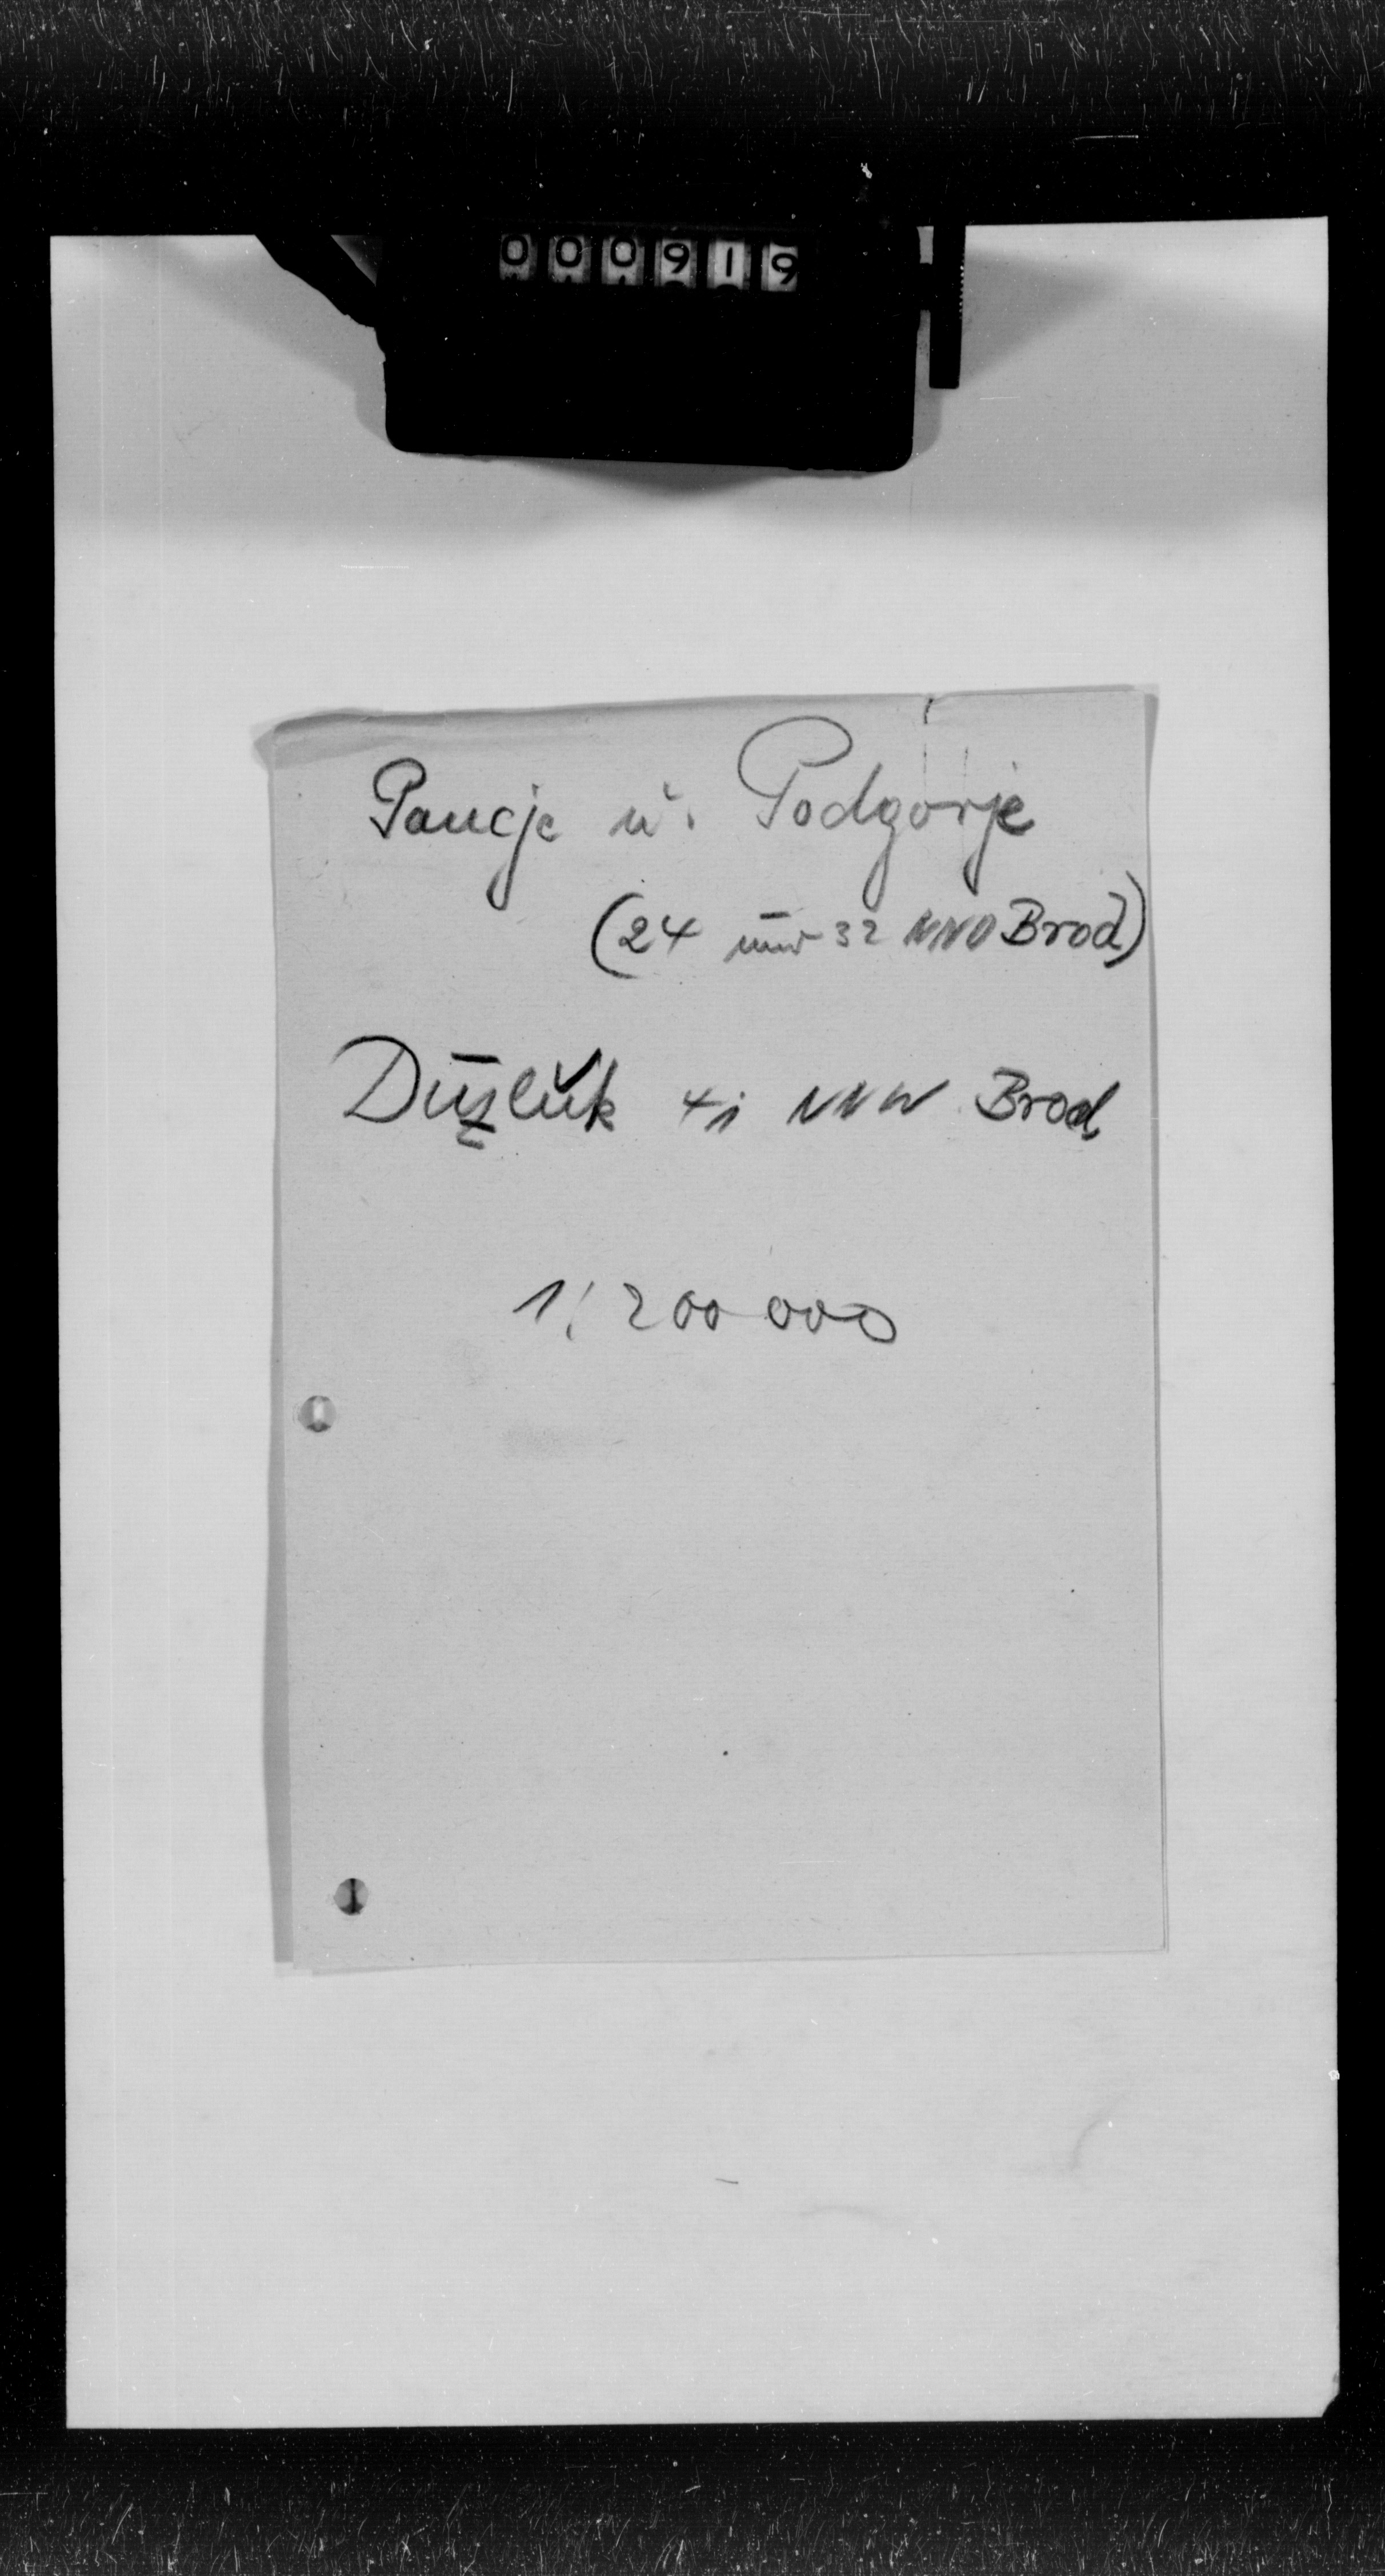 000919
Paucje u. Podgorje
(24 und 32 NNO Brod)
Duzluk 41 NNW Brod
1:200000